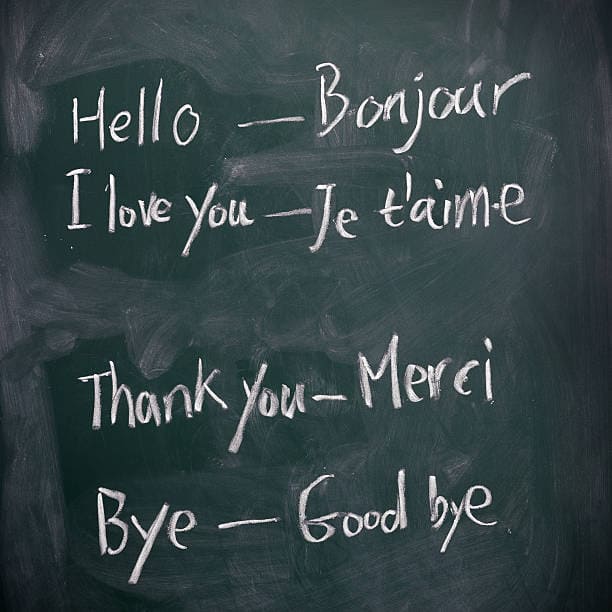 Hello — Bonjour
I love you — Je t'aime
Thank you – Merci
Bye — Good bye